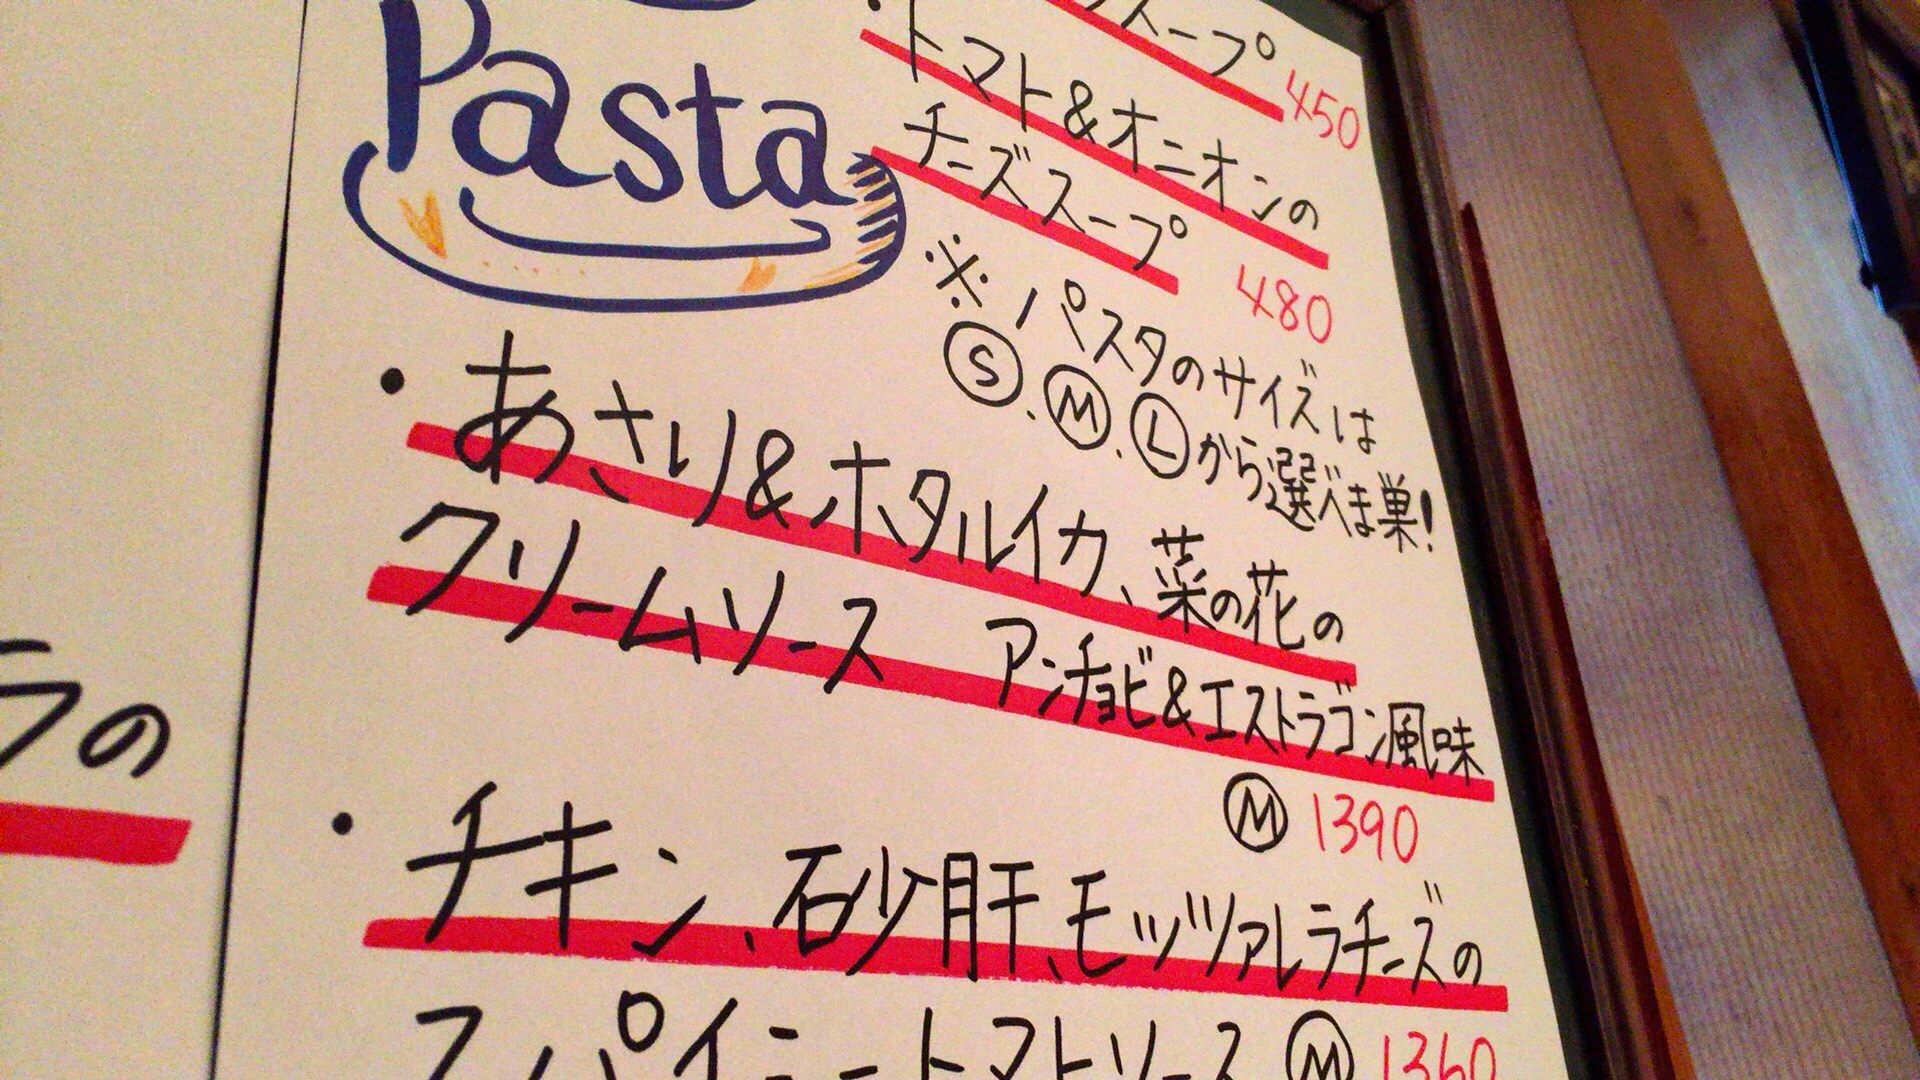 スープ 450
・トマト&オニオンの
チーズスープ
480
Pasta
※パスタのサイズは
Ⓢ、Ⓜ、Ⓛから選べま巣!
・あさり&ホタルイカ、菜の花の
クリームソース アンチョビ&エストラゴン風味
Ⓜ 1390
・チキン、砂肝、モッツァレラチーズの
スパイシートマトソース Ⓜ 1360
ラの